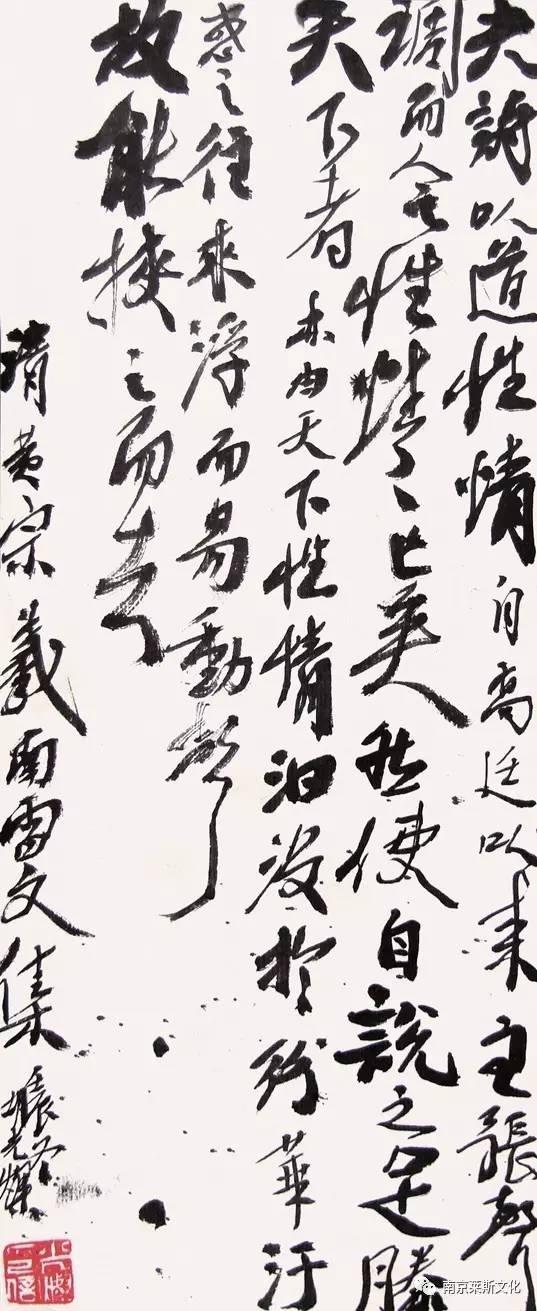 夫詩以道性情自高廷以来主張聲
調而人之性情亡矣然使自說之足勝
天下者亦由天下性情汩沒於紛華汙
惑之往來浮而易動聲
故能挾之而
清黄宗羲南雷文集
南京莱斯文化